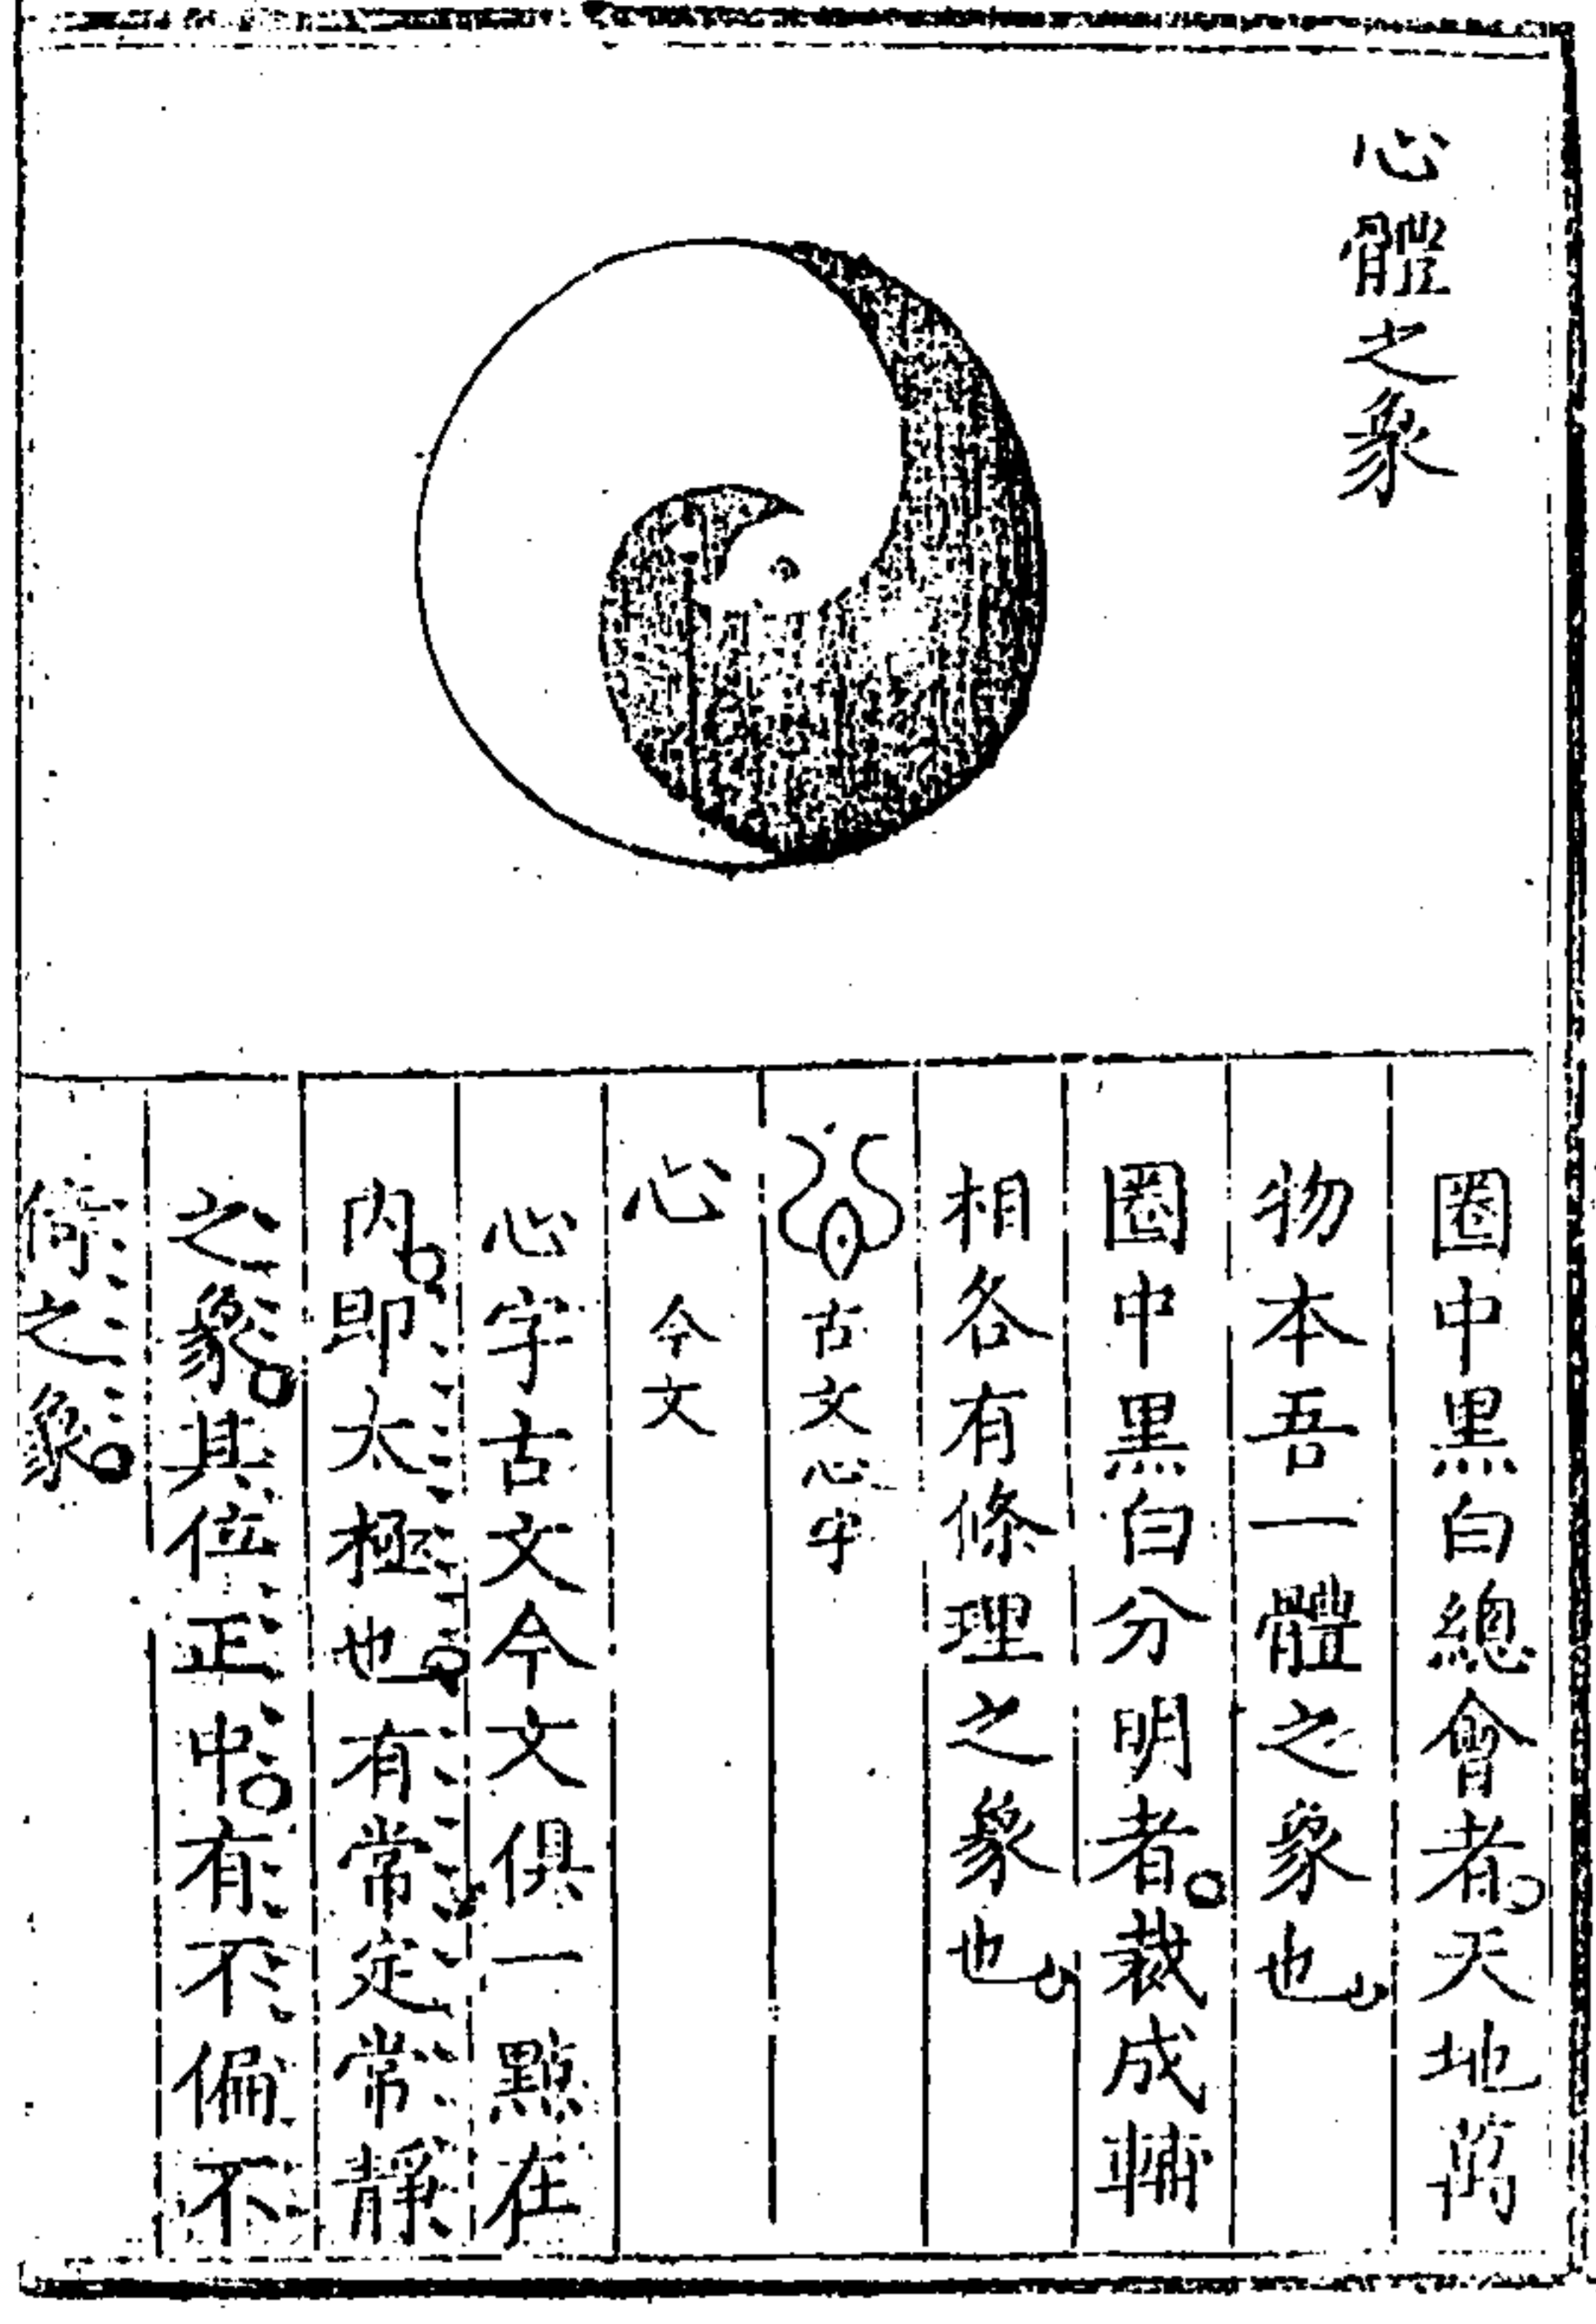 心體之象
圈中黑白總會者天地萬
物本吾一體之象也
圈中黑白分明者裁成輔
相各有條理之象也
古文心字
心 今文
心字古文今文俱一點在
内即太極也有常定常靜
之象其位正中有不偏不
倚之象